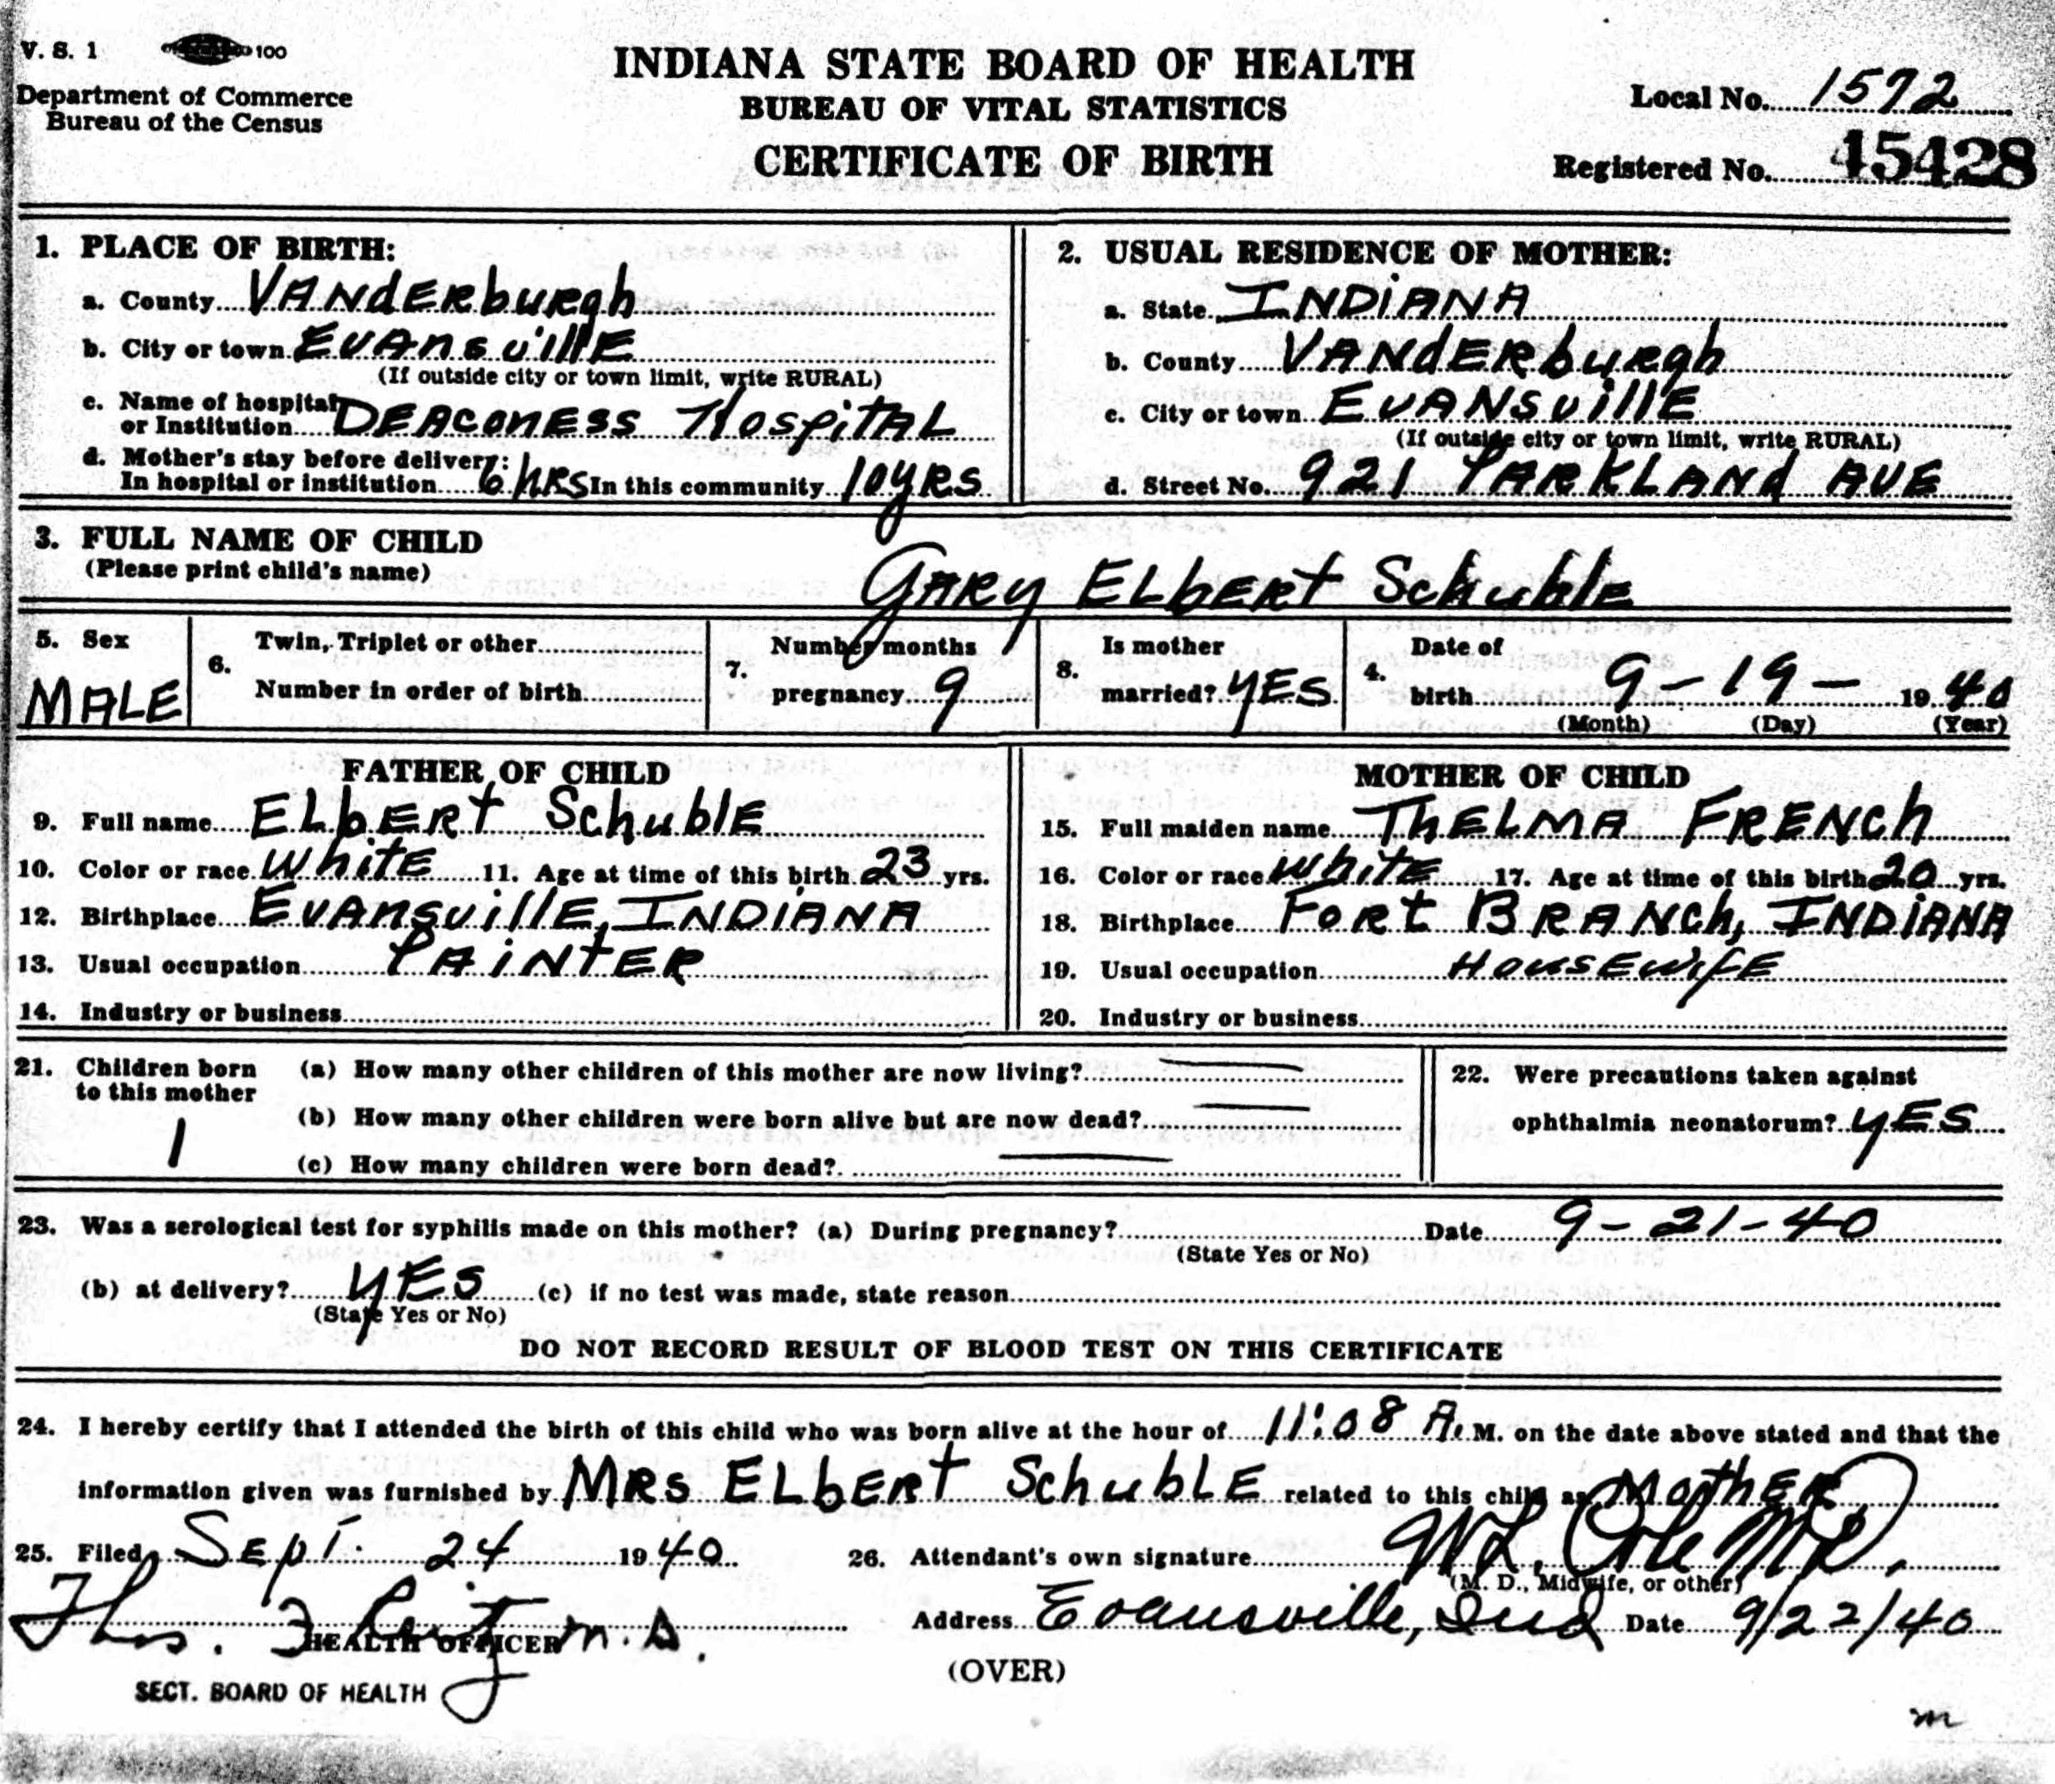 V. S. 1 100
Department of Commerce
Bureau of the Census
INDIANA STATE BOARD OF HEALTH
BUREAU OF VITAL STATISTICS
CERTIFICATE OF BIRTH
Local No. 1572
Registered No. 45428
1. PLACE OF BIRTH:
a. County VANdERburgh
b. City or town EVAnsvillE
(If outside city or town limit, write RURAL)
c. Name of hospital
or Institution DEACONESS HospiTAL
d. Mother's stay before delivery:
In hospital or institution 6 hRS In this community 10yRS
2. USUAL RESIDENCE OF MOTHER:
a. State INDiANA
b. County VANdERburgh
c. City or town EVANSvillE
(If outside city or town limit, write RURAL)
d. Street No. 921 PARKLANd AVE
3. FULL NAME OF CHILD
(Please print child's name)
GARy ELbERt SchublE
5. Sex
MALE
6. Twin, Triplet or other
Number in order of birth
7. Number months
pregnancy 9
8. Is mother
married? yES
4. Date of
birth 9-19- 1940
(Month) (Day) (Year)
FATHER OF CHILD
9. Full name ELbERt SchublE
10. Color or race WhitE 11. Age at time of this birth 23 yrs.
12. Birthplace EVAnsvillE, INDIANA
13. Usual occupation PAiNtER
14. Industry or business
MOTHER OF CHILD
15. Full maiden name ThELMA FRENch
16. Color or race WhitE 17. Age at time of this birth 20 yrs.
18. Birthplace FoRt BRANch, INDiANA
19. Usual occupation HousEwifE
20. Industry or business
21. Children born
to this mother
1
(a) How many other children of this mother are now living? —
(b) How many other children were born alive but are now dead? —
(c) How many children were born dead? —
22. Were precautions taken against
ophthalmia neonatorum? yES
23. Was a serological test for syphilis made on this mother? (a) During pregnancy? Date 9-21-40
(State Yes or No)
(b) at delivery? yES (c) if no test was made, state reason
(State Yes or No)
DO NOT RECORD RESULT OF BLOOD TEST ON THIS CERTIFICATE
24. I hereby certify that I attended the birth of this child who was born alive at the hour of 11:08 A. M. on the date above stated and that the
information given was furnished by MRS ELbERt SchublE related to this child as MothER
25. Filed SEpt. 24 1940
26. Attendant's own signature Cole MD.
(M. D., Midwife, or other)
Thos. m.D.
HEALTH OFFICER
Address Evansville, Ind Date 9/22/40
SECT. BOARD OF HEALTH
(OVER)
m